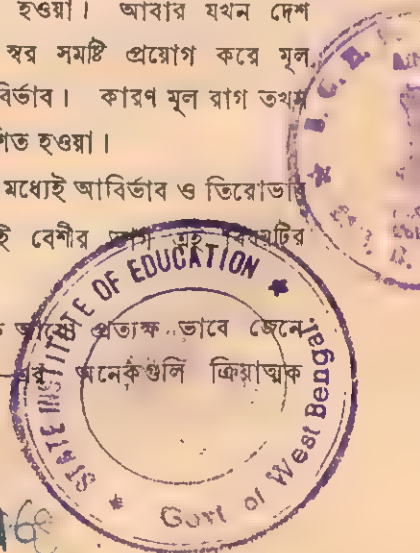 হওয়া। আবার যখন দেশ
স্বর সমষ্টি প্রয়োগ করে মূল
বির্ভাব। কারণ মূল রাগ তখন
শিত হওয়া।
মধ্যেই আবির্ভাব ও তিরোভাব
ই বেশীর ভাগ এই বিষয়টির
প্রত্যক্ষ ভাবে জেনে
অনেকগুলি ক্রিয়াত্মক
STATE INSTITUTE OF EDUCATION ★
Govt of West Bengal ★